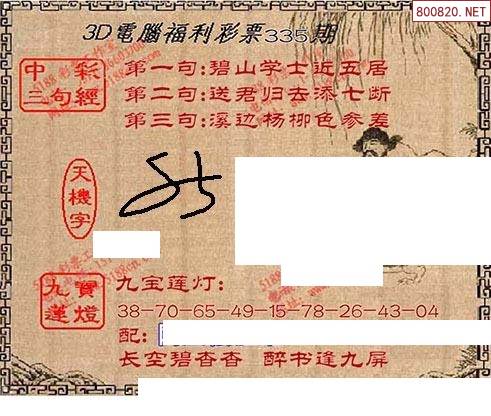 800820.NET
3D電腦福利彩票335期
中彩
三句經
第一句:碧山学士近五居
第二句:送君归去添七断
第三句:溪边杨柳色参差
天機字
九寶蓮燈
九宝莲灯:
38-70-65-49-15-78-26-43-04
配:
长空碧杳杳 醉书逢九屏